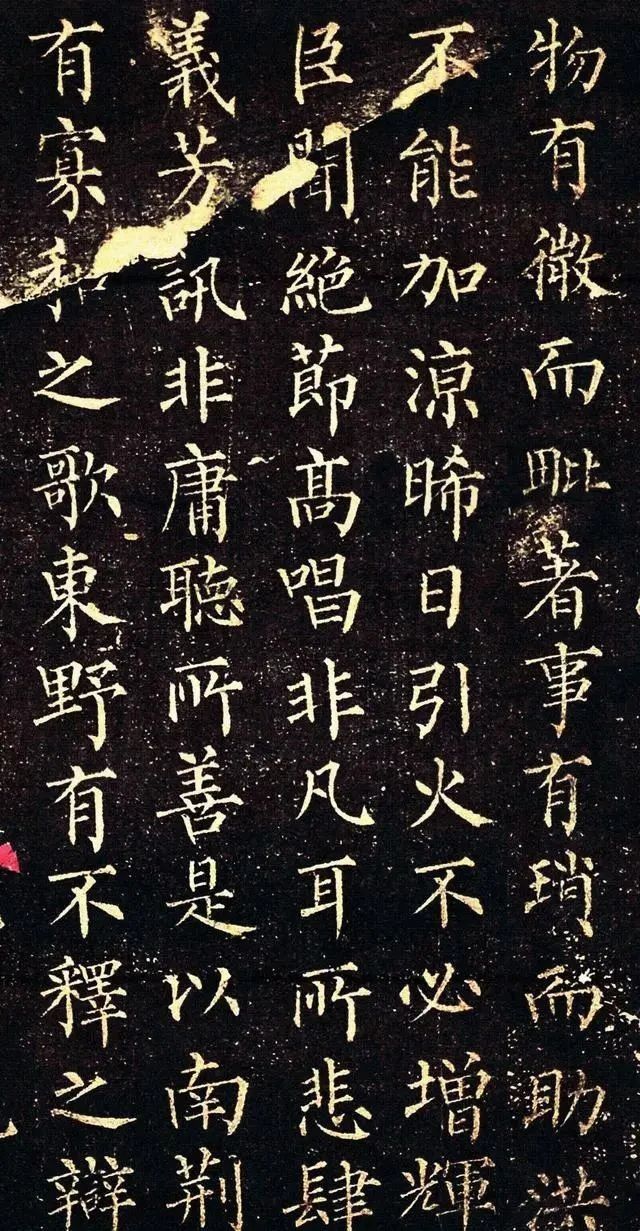 物有微而毗著事有瑣而助洪
不能加涼晞日引火不必增輝
臣聞絶節髙唱非凡耳所悲肆
義芳訊非庸聽所善是以南荆
有寡和之歌東野有不釋之辯